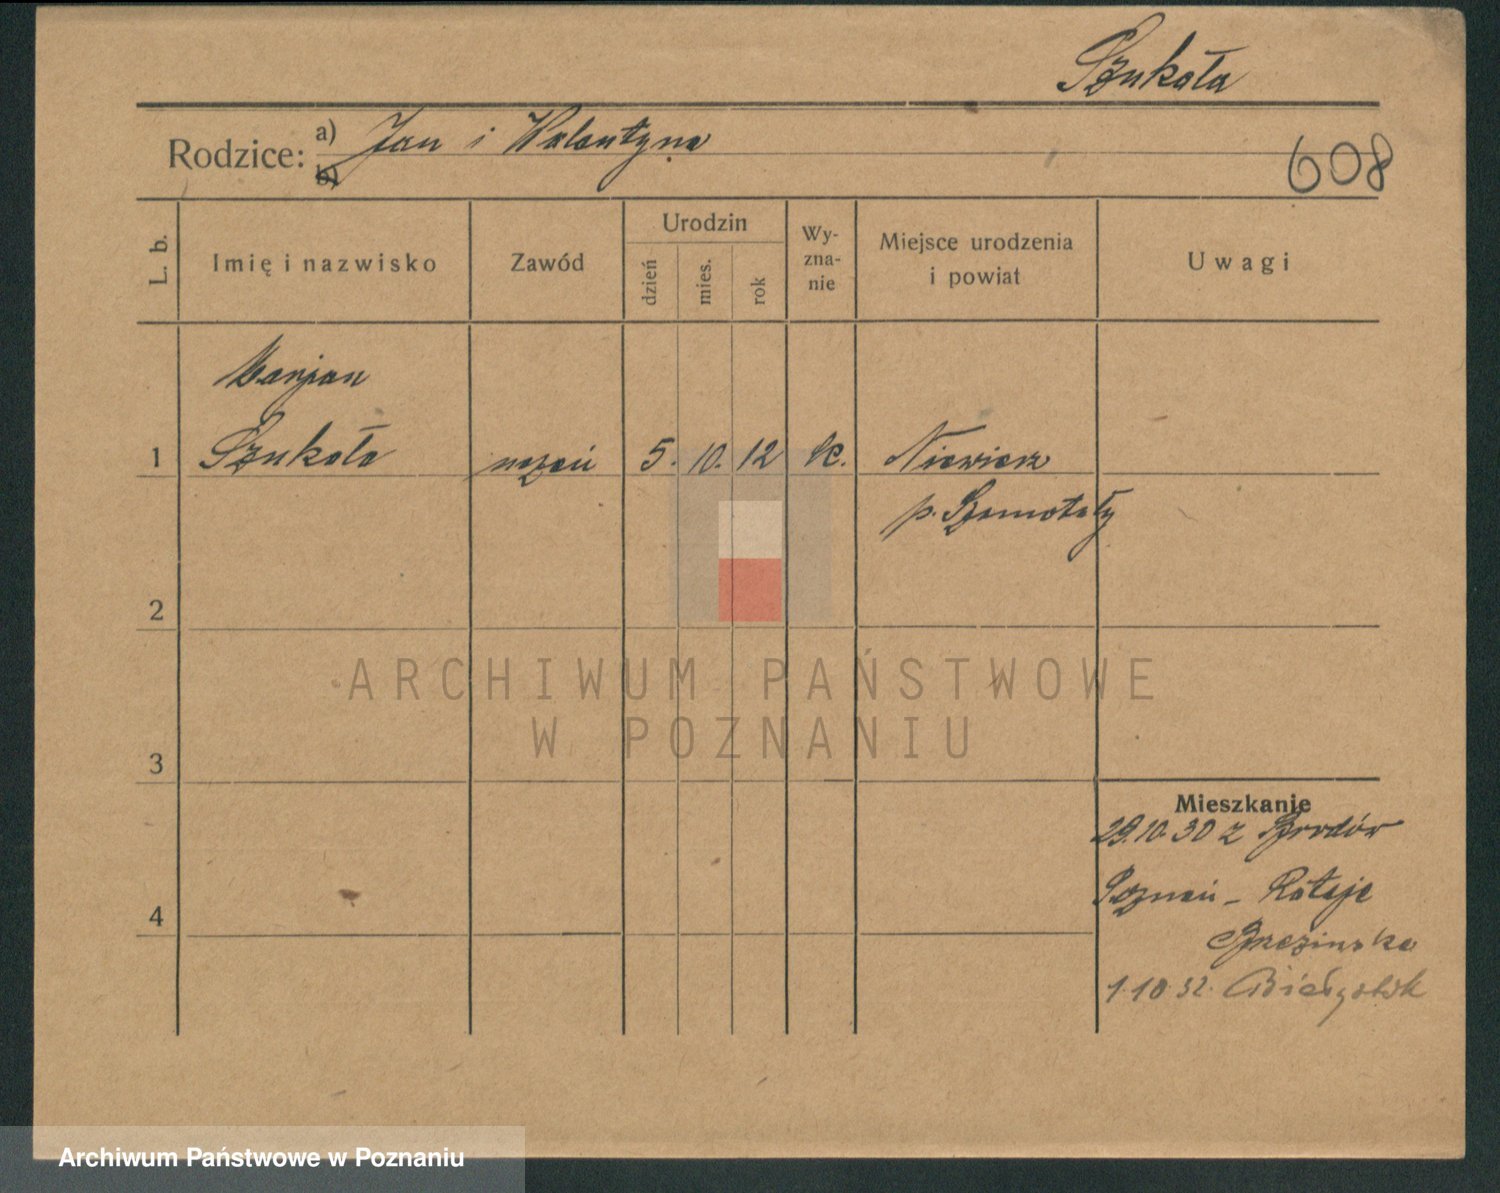 Szukała
Rodzice: a) Jan i Walentyna
b)
608
L. b.
Imię i nazwisko
Zawód
Urodzin
dzień
mies.
rok
Wy-
zna-
nie
Miejsce urodzenia
i powiat
Uwagi
Marjan
1 Szukała uczeń 5. 10. 12 k. Niewierz
p. Szamotuły
2
3
4
Mieszkanie
29.10.30 z Brodów
Poznań - Rataje
1.10.32. Białystok
ARCHIWUM PAŃSTWOWE
W POZNANIU
Archiwum Państwowe w Poznaniu